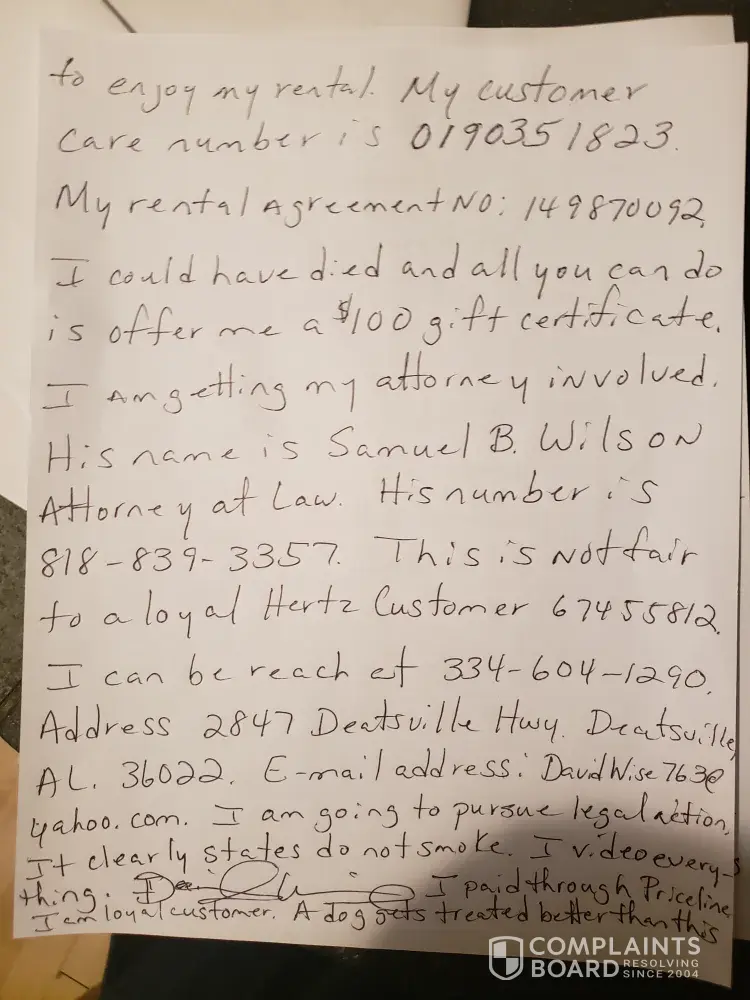 to enjoy my rental. My customer
care number is 0190351823.
My rental Agreement NO: 149870092.
I could have died and all you can do
is offer me a $100 gift certificate.
I Am getting my attorney involved.
His name is Samuel B. Wilson
Attorney at Law. His number is
818-839-3357. This is Not fair
to a loyal Hertz Customer 67455812.
I can be reach at 334-604-1290.
Address 2847 Deatsville Hwy. Deatsville,
AL. 36022. E-mail address: DavidWise763@
yahoo.com. I am going to pursue legal action,
It clearly states do not smoke. I video every-
thing. I paid through Priceline
I am loyal customer. A dog gets treated better than this
COMPLAINTS
BOARD RESOLVING
SINCE 2004